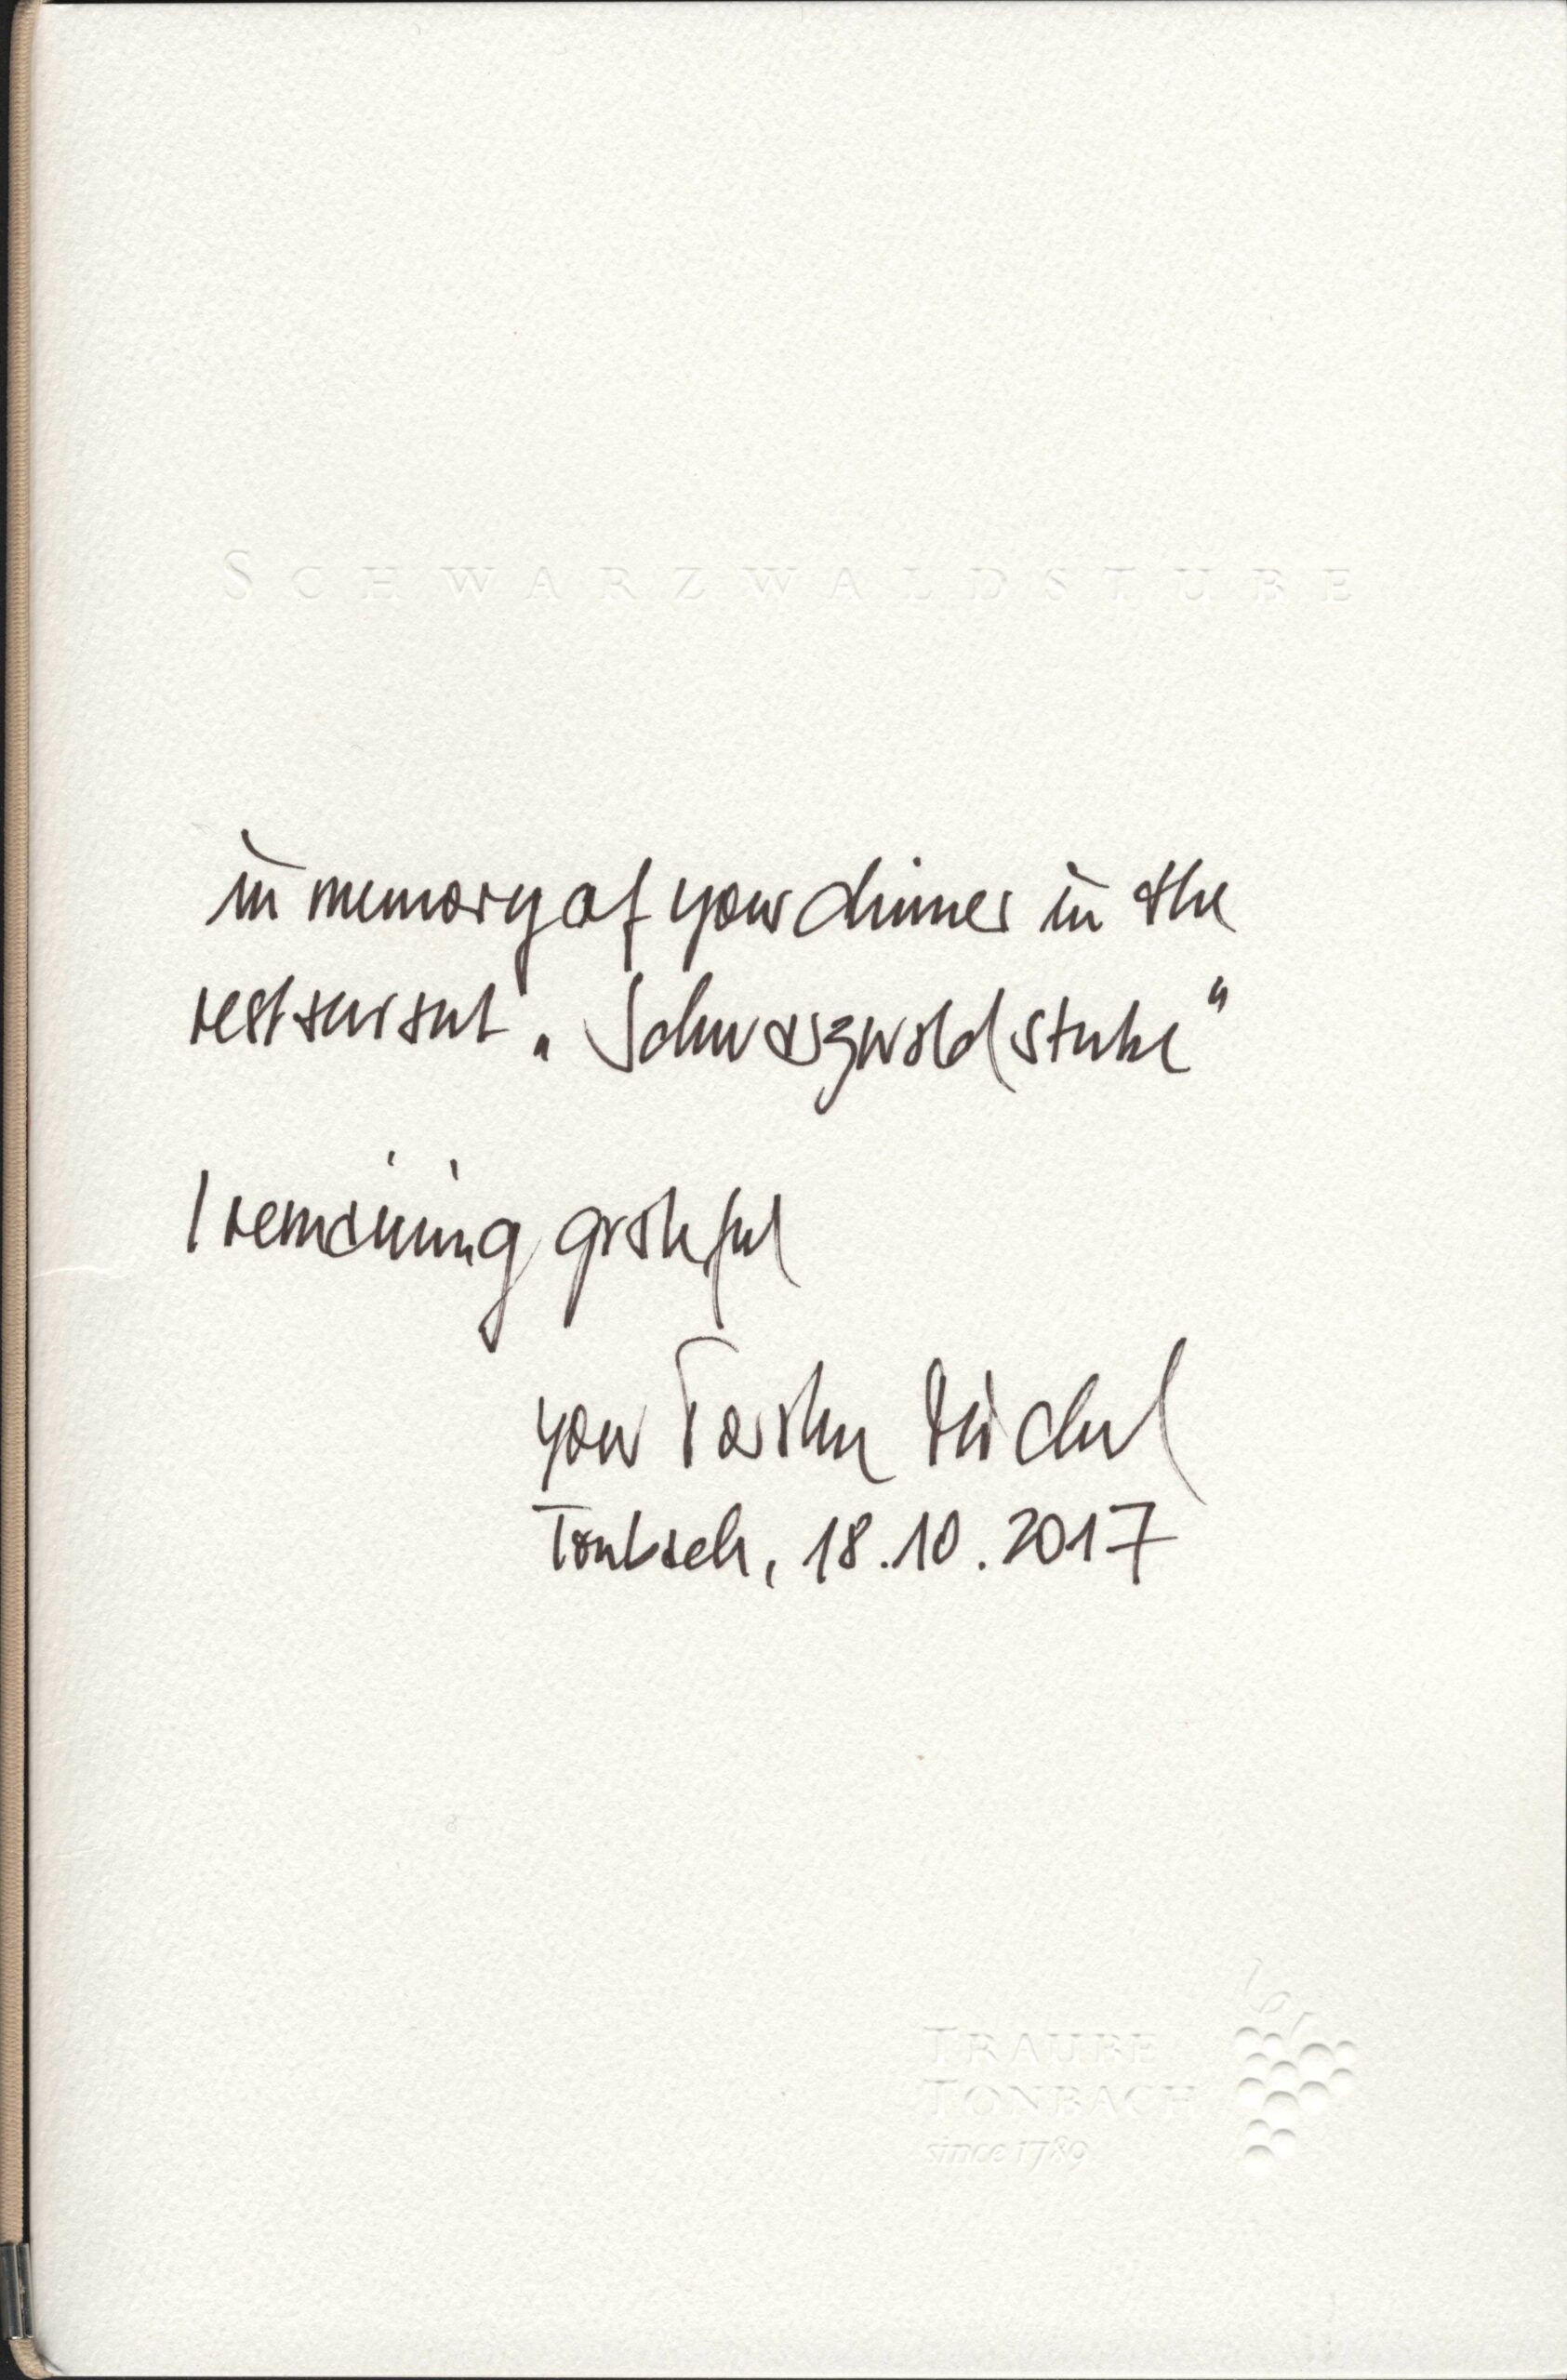 SCHWARZWALDSTUBE
in memory of your dinner in the
restaurant „Schwarzwaldstube“
I remaining grateful
your Torsten Michel
Tonbach, 18.10.2017
TRAUBE
TONBACH
since 1789